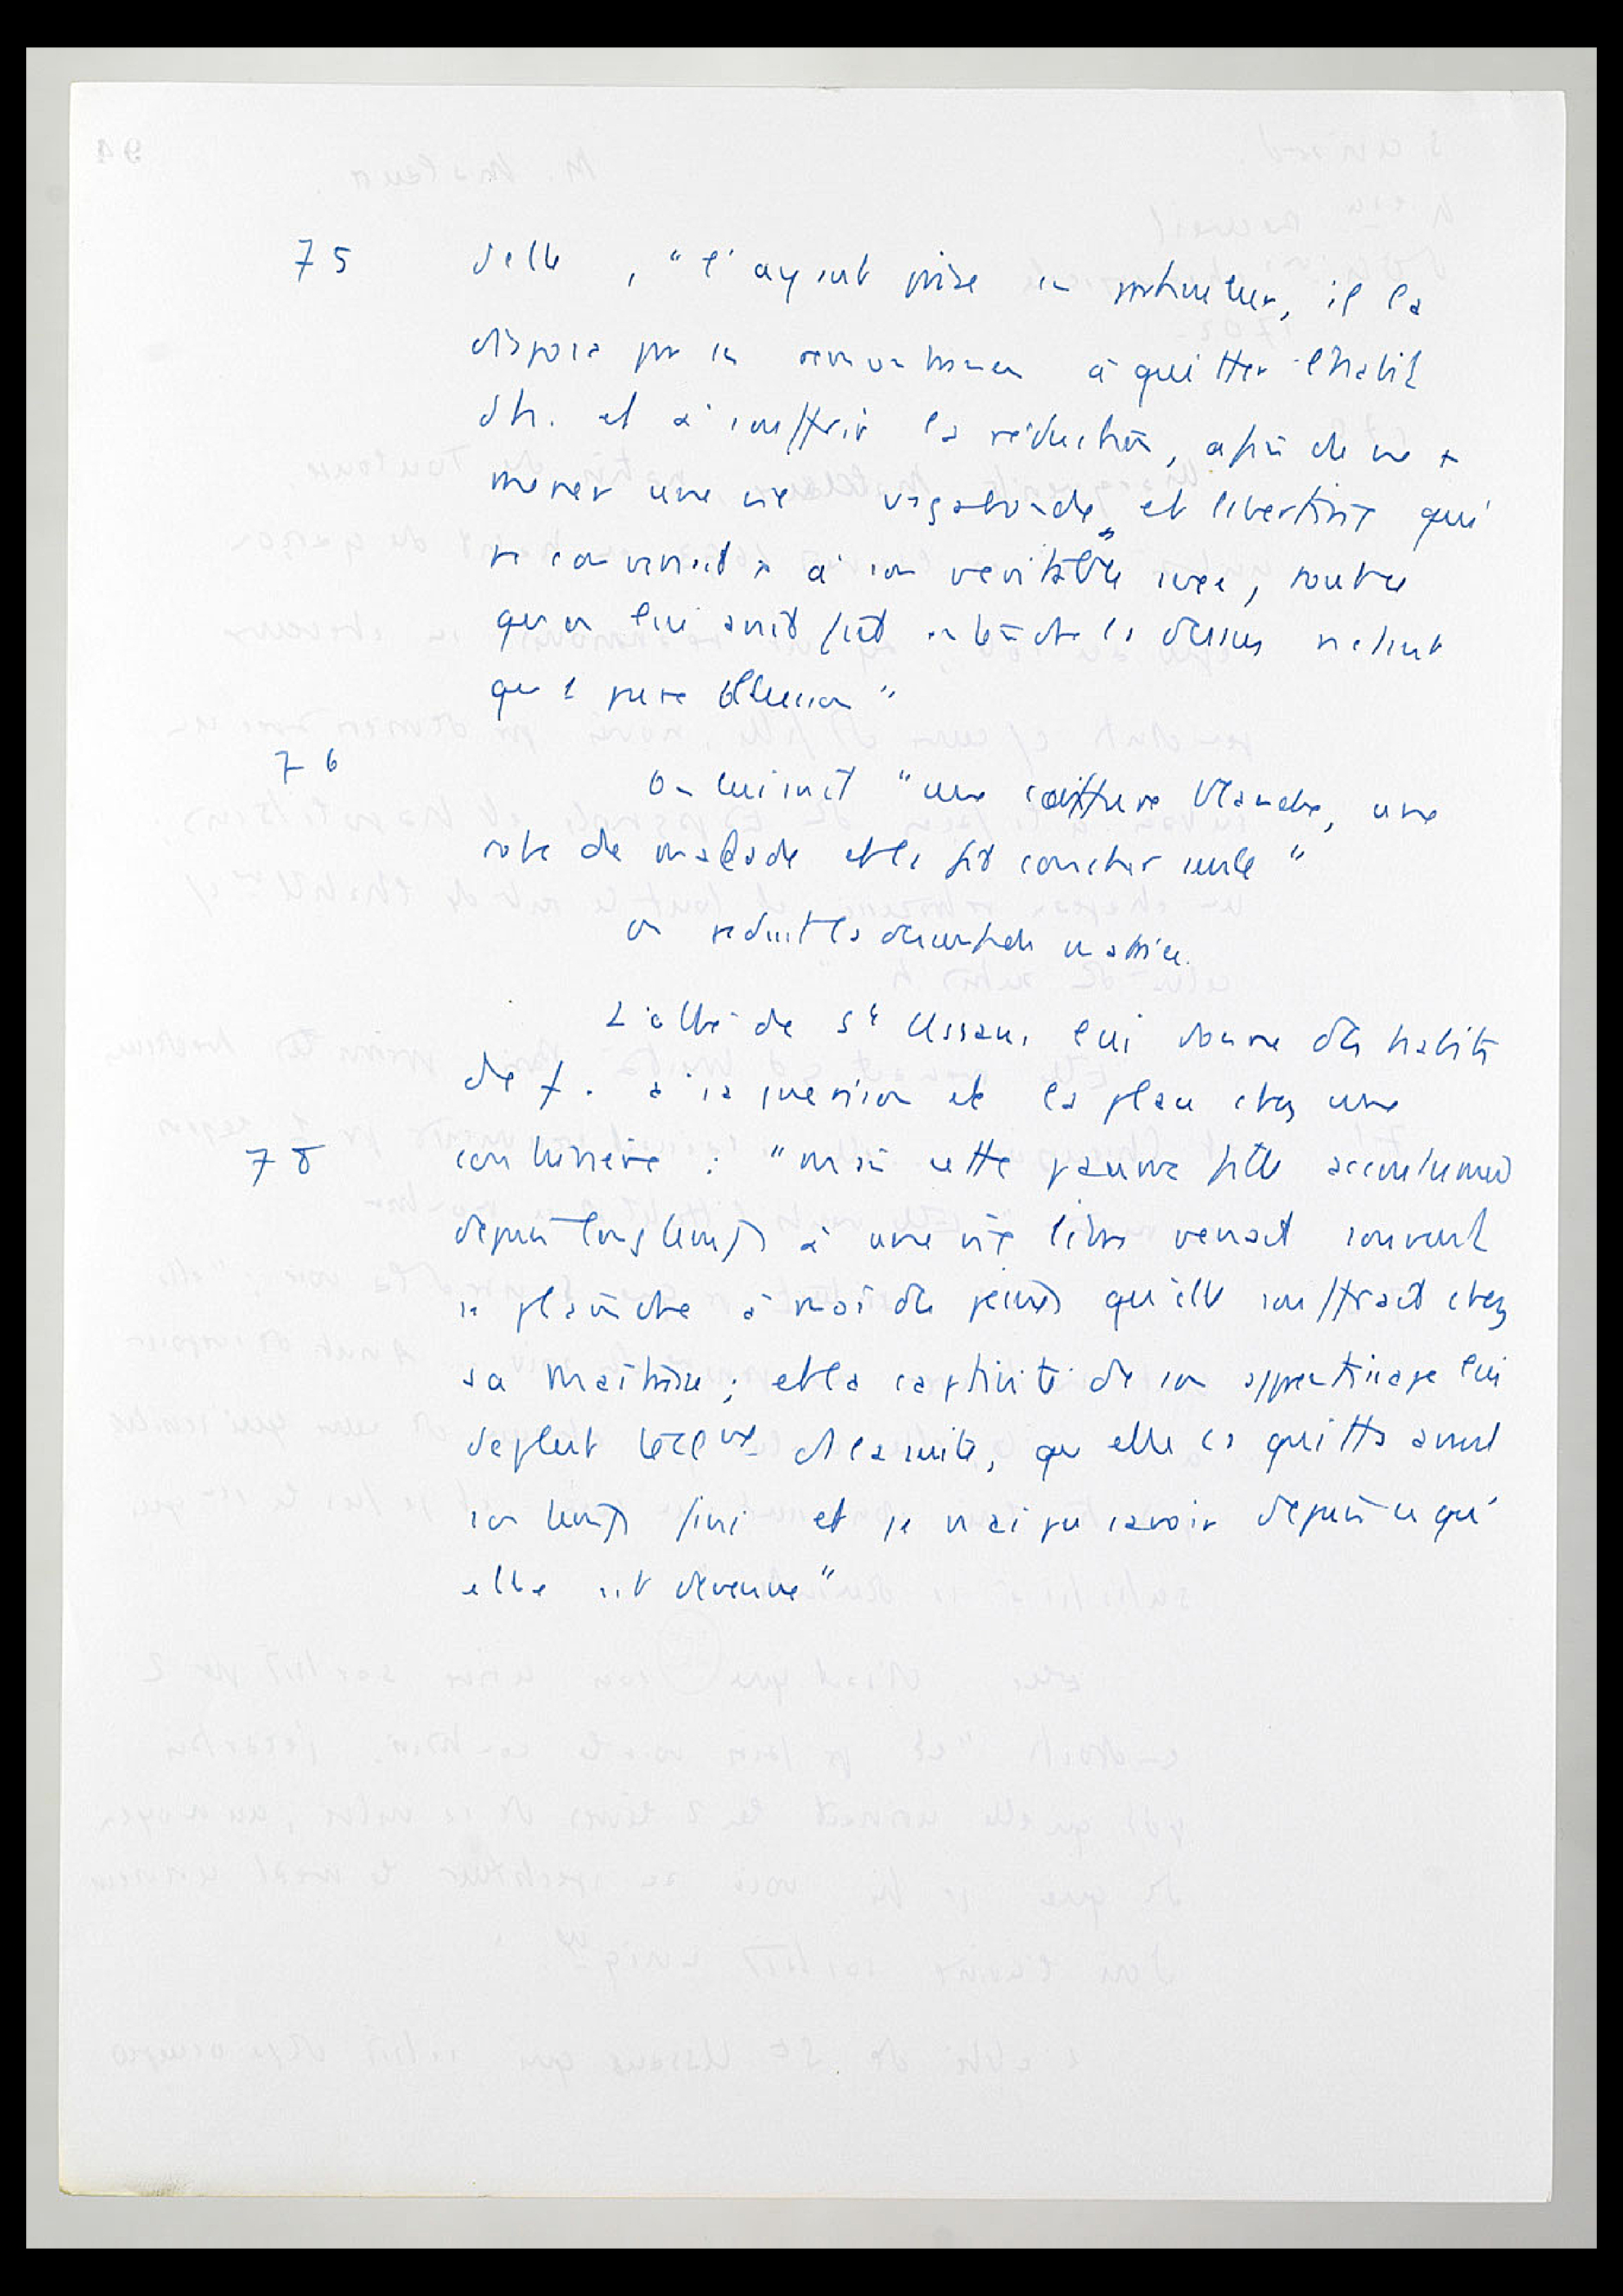 75 d'elle, "l'ayant prise en particulier, il la
disposa par ses remontrances à quitter l'habit
d'h. et à souffrir la réduction, afin de ne +
mener une vie vagabonde et libertine qui
ne convenait pas à son véritable sexe, toutes
qu'on lui avait fait entendre là dessus n'étant
qu'1 pure illusion"
76 On lui mit "une coiffure blanche, une
robe de malade et la fit coucher seule"
on réduit la descente de matrice.
L'abbé de St Ussans lui donne des habits
de f. à sa guérison et la place chez une
78 couturière : "mais cette pauvre fille accoutumée
depuis longtemps à une vie libre venait souvent
se plaindre à moi des peines qu'elle souffrait chez
sa Maîtresse ; et la captivité de son apprentissage lui
deplut tellmt dans la suite, qu'elle la quitta avant
son temps fini et je n'ai pu savoir depuis ce qu'
elle est devenue"